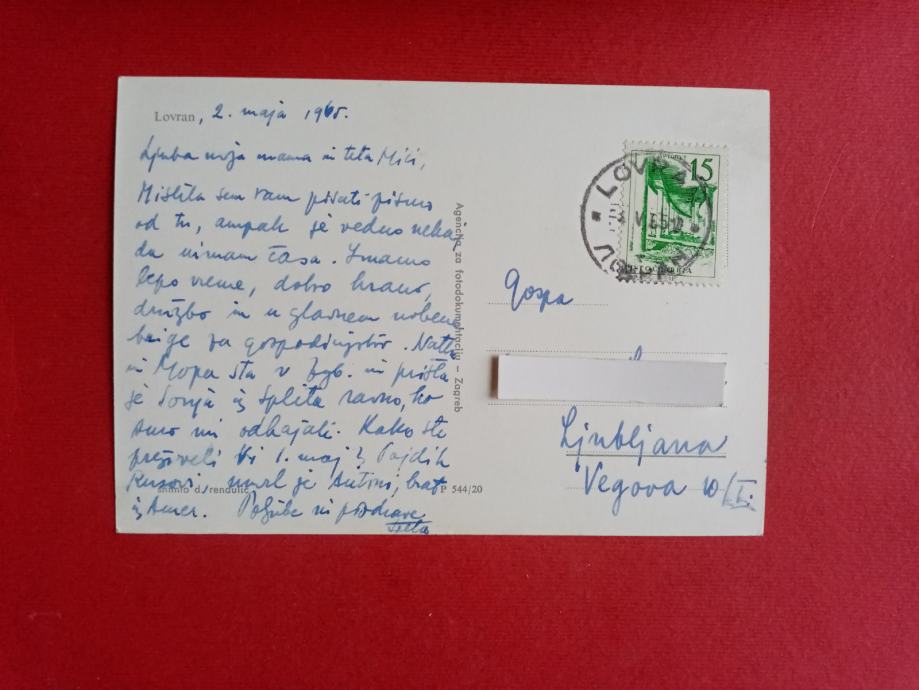 Lovran, 2. maja 1965.
Ljuba moja mama in teta Mici,
Mislila sem vam pisati pismo
od tu, ampak je vedno neka
da nimam časa. Imamo
lepo vreme, dobro hrano,
družbo in v glavnem nobene
brige za gospodinjstvo.
in Mopa sta v Zgb. in prišla
je Sonja iz Splita ravno, ko
smo mi odhajali. Kako ste
preživeli Vi 1. maj?
umrl je brat
iz Amer. Poljube in pozdrave
snimio d. rendulić
P 544/20
Agencija za fotodokumentaciju – Zagreb
15
LOVRAN
Gospa
Ljubljana
Vegova 10/I.